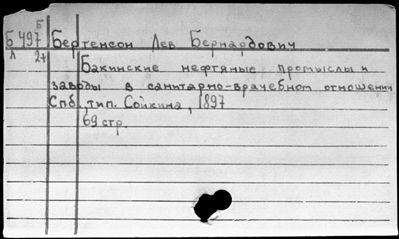 Б
Б 497 Бертенсон Лев Бернардович
Л 2+
Бакинские нефтяные промыслы и
заводы в санитарно-врачебном отношении
Спб., тип. Сойкина, 1897
69 стр.